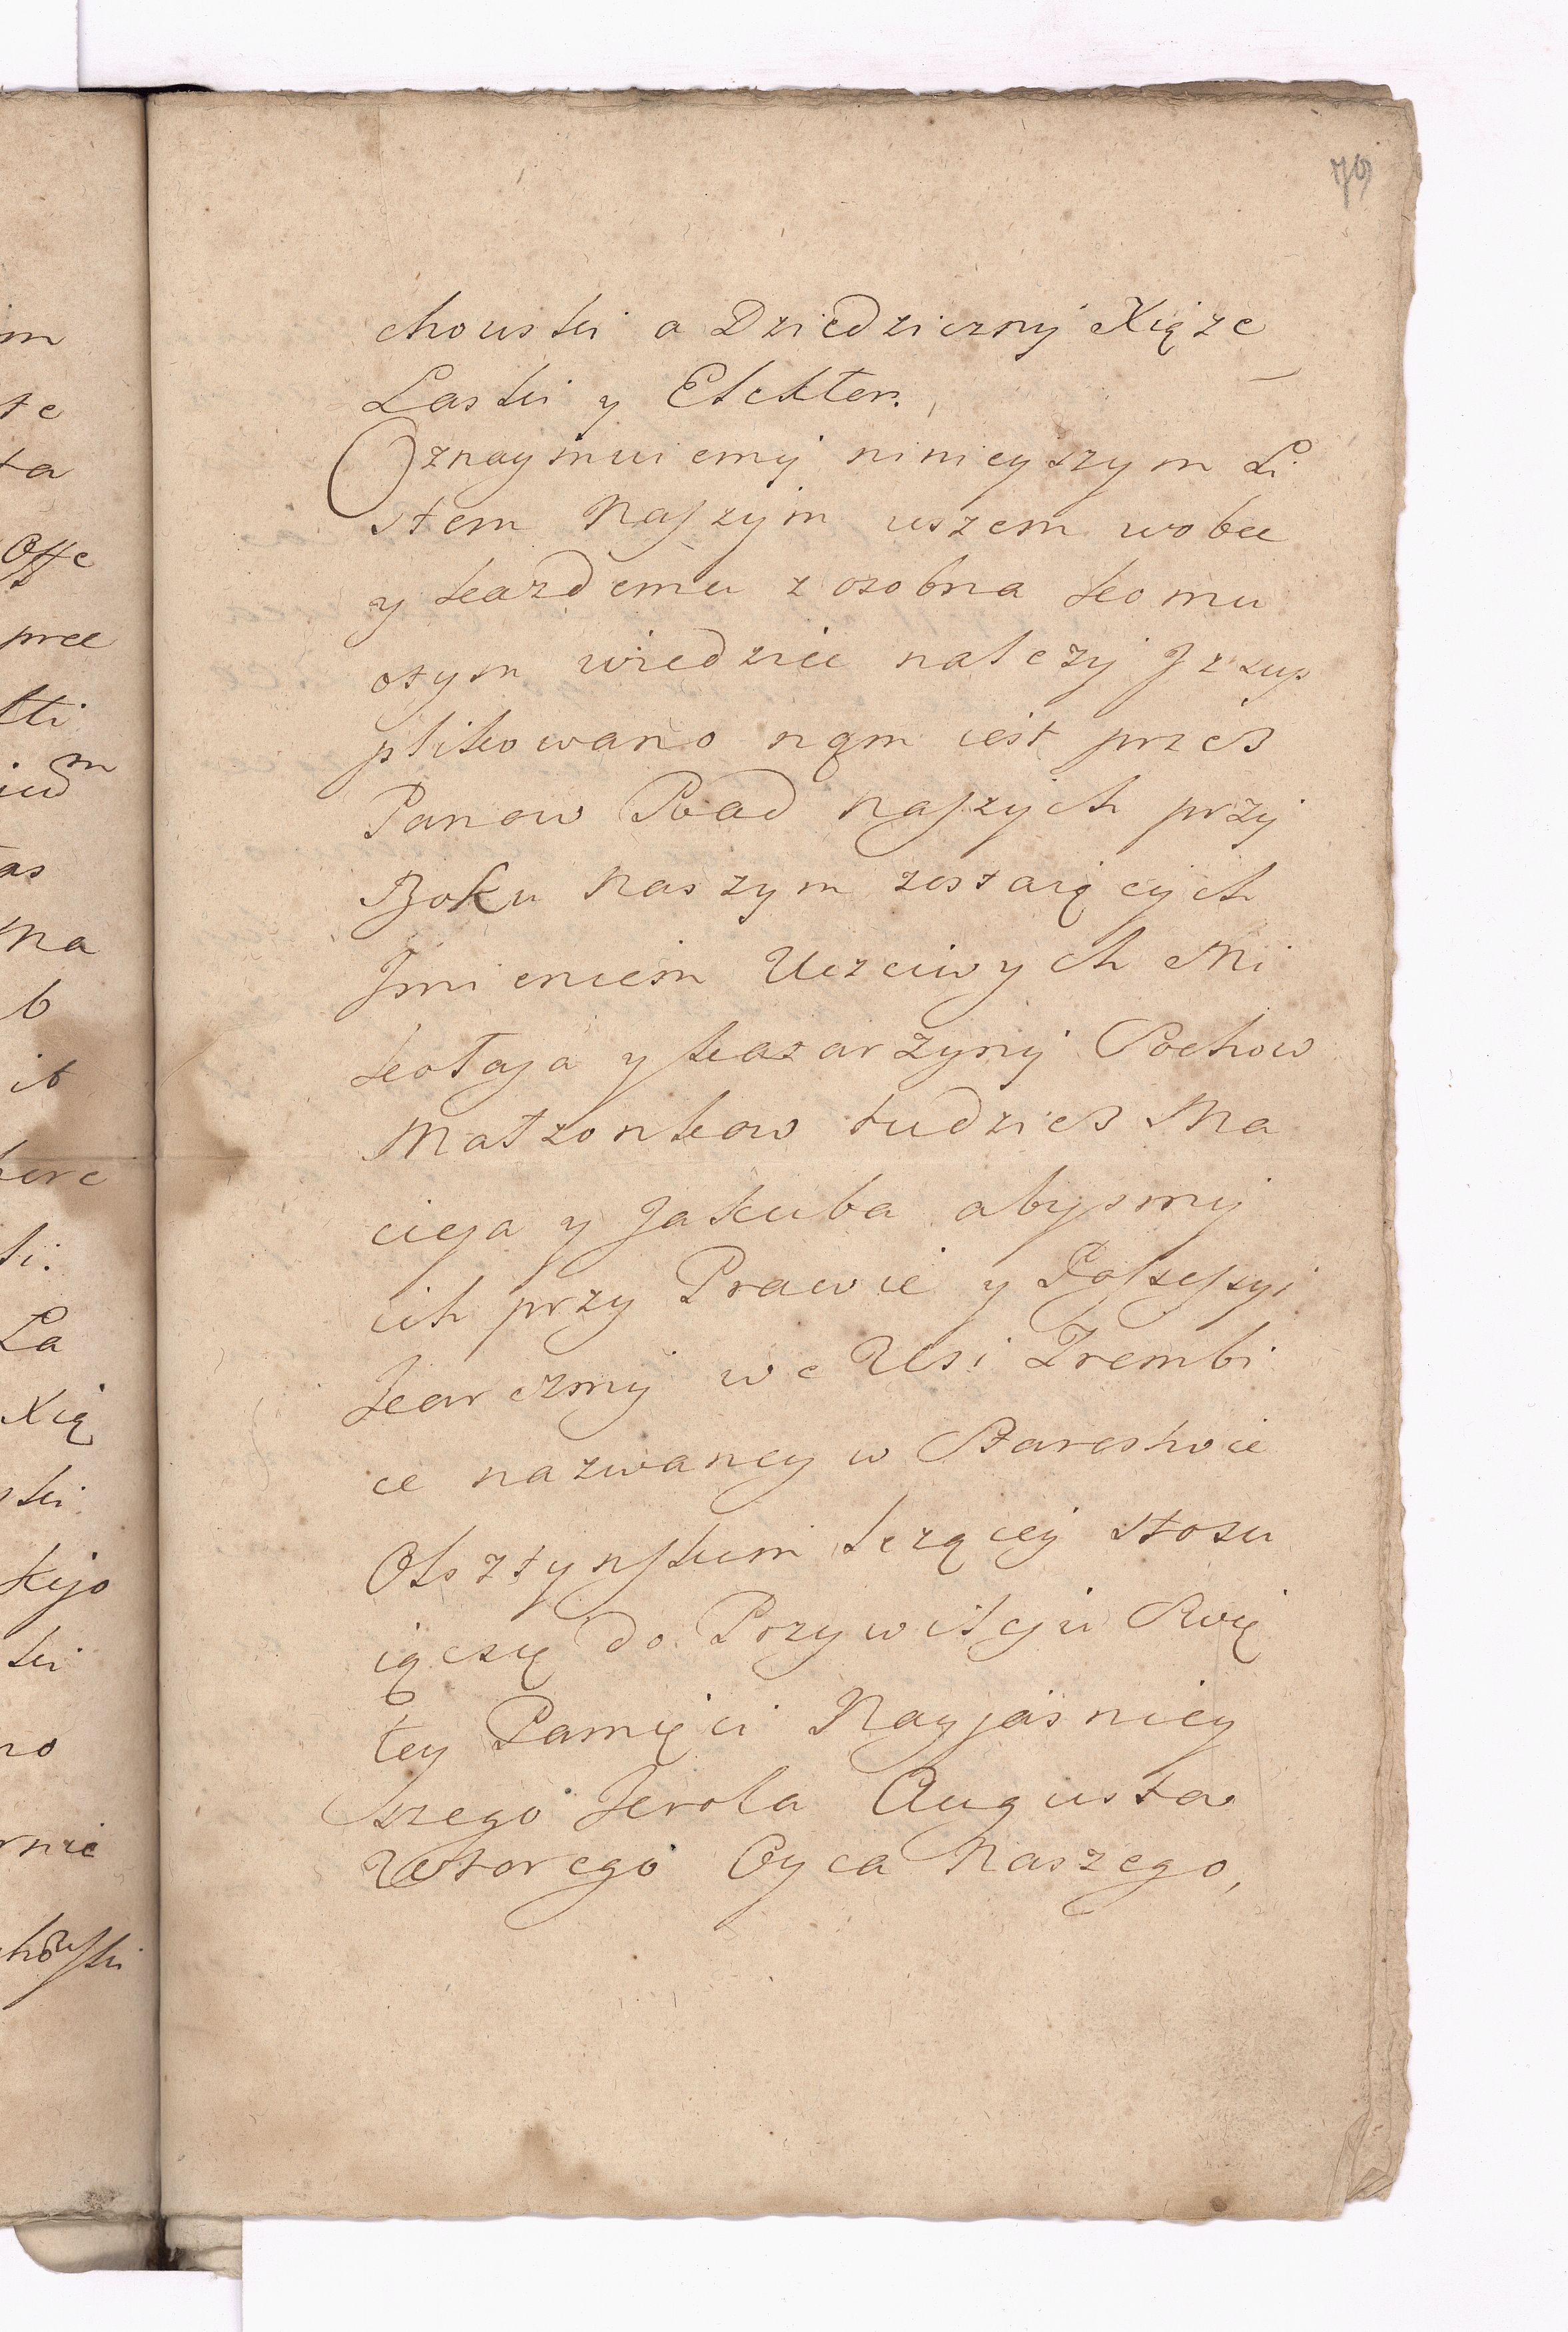 79
chowski a Dziedziczny Xiąze
Saski y Elektor.
Oznaymuiemy ninieyszym Li
stem Naszym wszem wobec
y każdemu zosobna komu
otym wiedzieć należy Jz sup
plikowano nąm iest przeß
Panow Rad naszych przy
Boku Naszym zostaiących
Jmieniem Uczciwych Mi
kołaja y Katarzyny Pochow
Małzonkow tudzieß Ma
cieja y Jakuba abysmy
ich przy Prawie y Possessyi
Karczmy we Wsi Trembi
ce nazwaney w Starostwie
Olsztynskim leząciey stosu
iącsię do Przywileju Swię
tey Pamięci Nayjasniey
szego Krola Augusta
Wtorego Oyca Naszego,
im
te
ta
Offe
pree
as
Ma
b
it
La
Xią
ski
kijo
ki
no
rnie